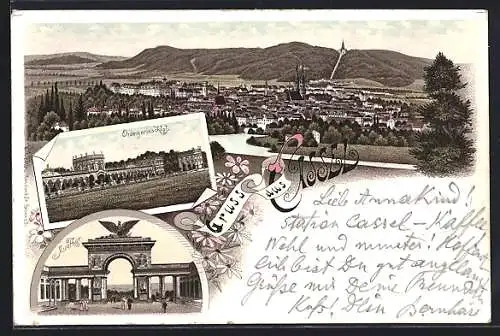 Orangerieschloß
Gruss aus Cassel
Liebe Anna Kind!
Station Cassel - Kaffee
Wohl und munter! Hoffent
lich bist Du gut angelangt
Grüße mir Deine Freundin
Dein Bernhard